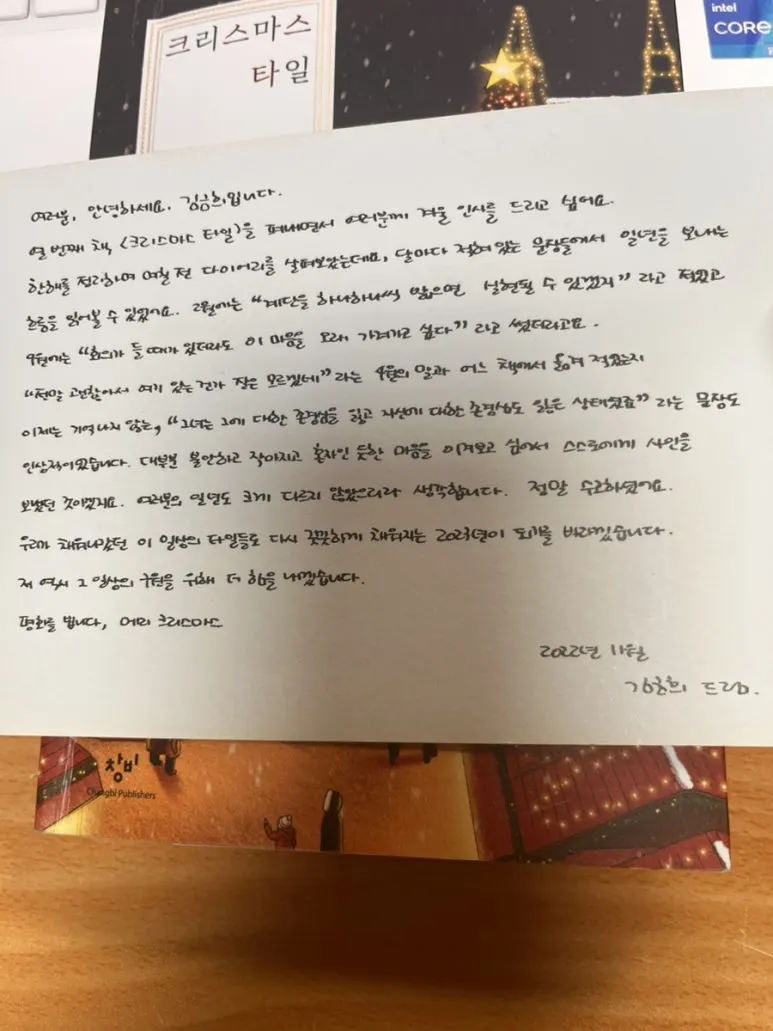 크리스마스
타일
intel
CORE
여러분, 안녕하세요. 김금희입니다.
열 번째 책 <크리스마스 타일>을 펴내면서 여러분께 겨울 인사를 드리고 싶어요.
한해를 정리하며 며칠 전 다이어리를 살펴보았는데요, 달마다 적혀 있는 문장들에서 일년을 보내는
흐름을 읽어볼 수 있었어요. 2월에는 "계단을 하나하나씩 밟으면 실현될 수 있겠지" 라고 적었고
9월에는 "회의가 들 때가 있더라도 이 마음을 오래 가져가고 싶다" 라고 썼더라고요.
"정말 괜찮아서 여기 있는건가 잘은 모르겠네" 라는 4월의 말과 어느 책에서 옮겨 적었는지
이제는 기억나지 않는, "그녀는 그에 대한 존경심을 잃고 자신에 대한 존경심도 잃은 상태였죠" 라는 문장도
인상적이었습니다. 대부분 불안하고 작아지고 혼자인 듯한 마음을 이겨보고 싶어서 스스로에게 사인을
보냈던 것이겠지요. 여러분의 일년도 크게 다르지 않았으리라 생각합니다. 정말 수고하셨어요.
우리가 채워나갔던 이 일상의 타일들도 다시 굿굿하게 채워지는 2023년이 되기를 바라겠습니다.
저 역시 그 일상의 구원을 위해 더 힘을 내겠습니다.
평화를 빕니다, 메리 크리스마스
2022년 11월
김금희 드림.
창비
Changbi Publishers